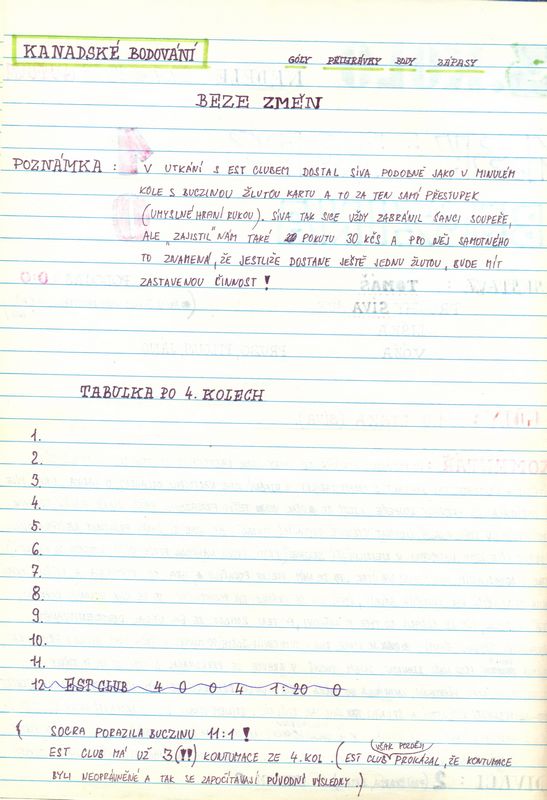 KANADSKÉ BODOVÁNÍ GÓLY PŘIHRÁVKY BODY ZÁPASY
BEZE ZMĚN
POZNÁMKA : V UTKÁNÍ S EST CLUBEM DOSTAL SÍVA PODOBNĚ JAKO V MINULÉM
KOLE S BUCZINOU ŽLUTOU KARTU A TO ZA TEN SAMÍ PŘESTUPEK
(ÚMYSLNÉ HRANÍ RUKOU). SÍVA TAK SICE VŽDY ZABRÁNIL ŠANCI SOUPEŘE,
ALE "ZAJISTIL" NÁM TAKÉ POKUTU 30 KČS A PRO NĚJ SAMOTNÉHO
TO ZNAMENÁ, ŽE JESTLIŽE DOSTANE JEŠTĚ JEDNU ŽLUTOU, BUDE MÍT
ZASTAVENOU ČINNOST !
TABULKA PO 4. KOLECH
1.
2.
3.
4.
5.
6.
7.
8.
9.
10.
11.
12. EST CLUB 4 0 0 4 1:20 0
( SOCRA PORAZILA BUCZINU 11:1 !
EST CLUB MÁ UŽ 3(!!) KONTUMACE ZE 4. KOL. (EST CLUB VŠAK POZDĚJI PROKÁZAL, ŽE KONTUMACE
BYLI NEOPRÁVNĚNÉ A TAK SE ZAPOČÍTÁVAJÍ PŮVODNÍ VÝSLEDKY.)